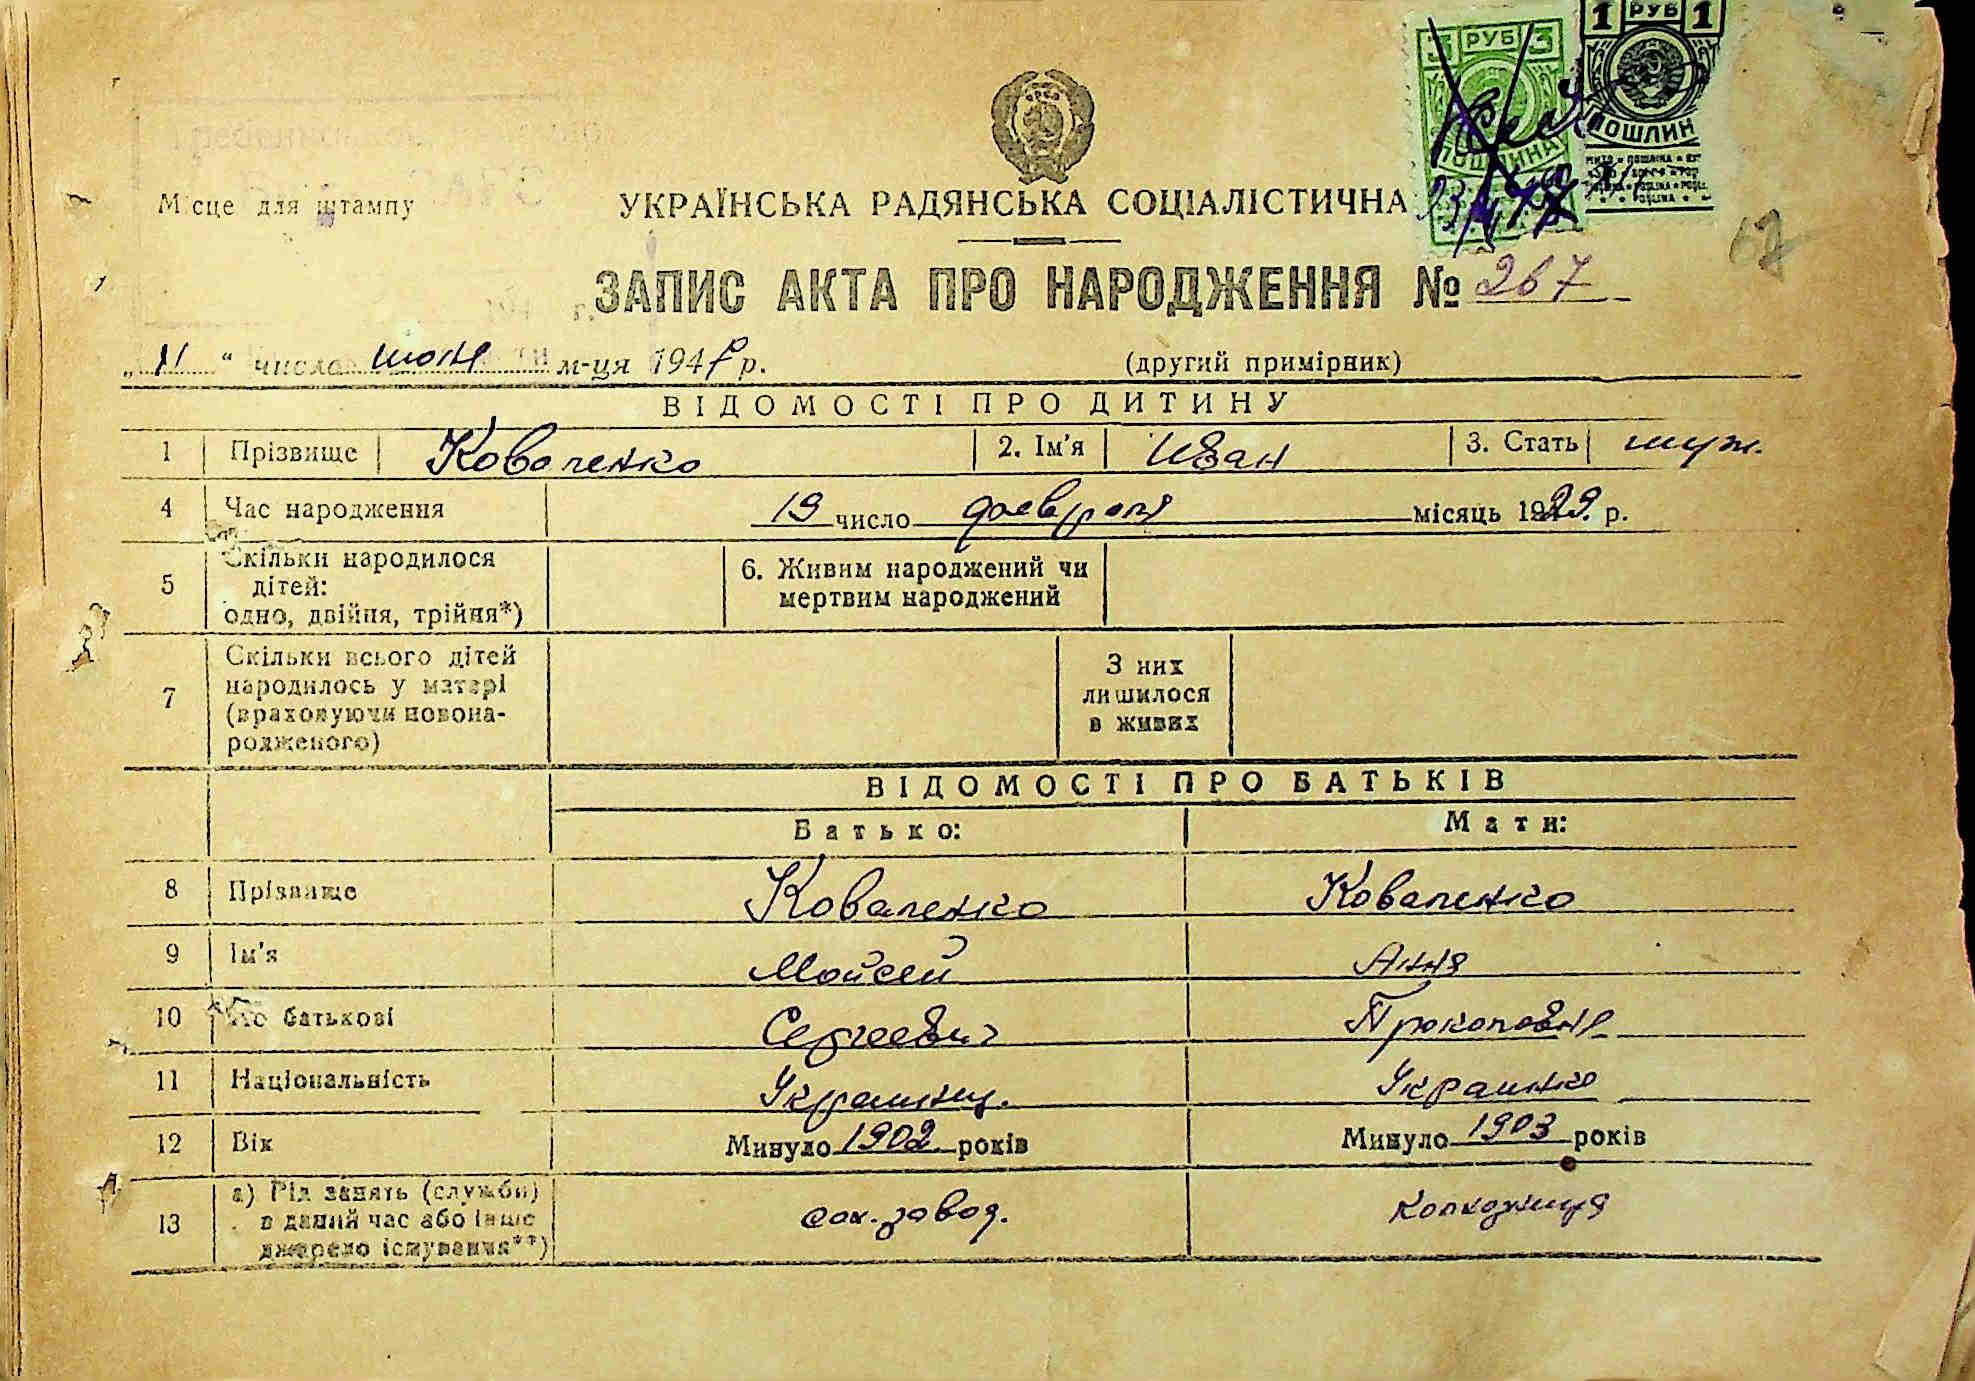 3 РУБ 3
1 РУБ 1
ПОШЛИНА
ПОШЛИН
Місце для штампу
УКРАЇНСЬКА РАДЯНСЬКА СОЦІАЛІСТИЧНА
ЗАПИС АКТА ПРО НАРОДЖЕННЯ № 267
„11“ числа июня м-ця 194 р.
(другий примірник)
ВІДОМОСТІ ПРО ДИТИНУ
1 Прізвище Коваленко 2. Ім'я Иван 3. Стать муж.
4 Час народження 19 число февраля місяць 1929. р.
5 Скільки народилося дітей: одно, двійня, трійня*)
6. Живим народжений чи мертвим народжений
7 Скільки всього дітей народилось у матері (враховуючи новонародженого)
З них лишилося в живих
ВІДОМОСТІ ПРО БАТЬКІВ
Батько: Мати:
8 Прізвище Коваленко Коваленко
9 Ім'я Мойсей Анна
10 По батькові Сергеевич Прокоповна
11 Національність Украинец. Украинка
12 Вік Минуло 1902 років Минуло 1903 років
13 а) Рід занять (служби) в даний час або інше джерело існування**) сах. завод. колхозница